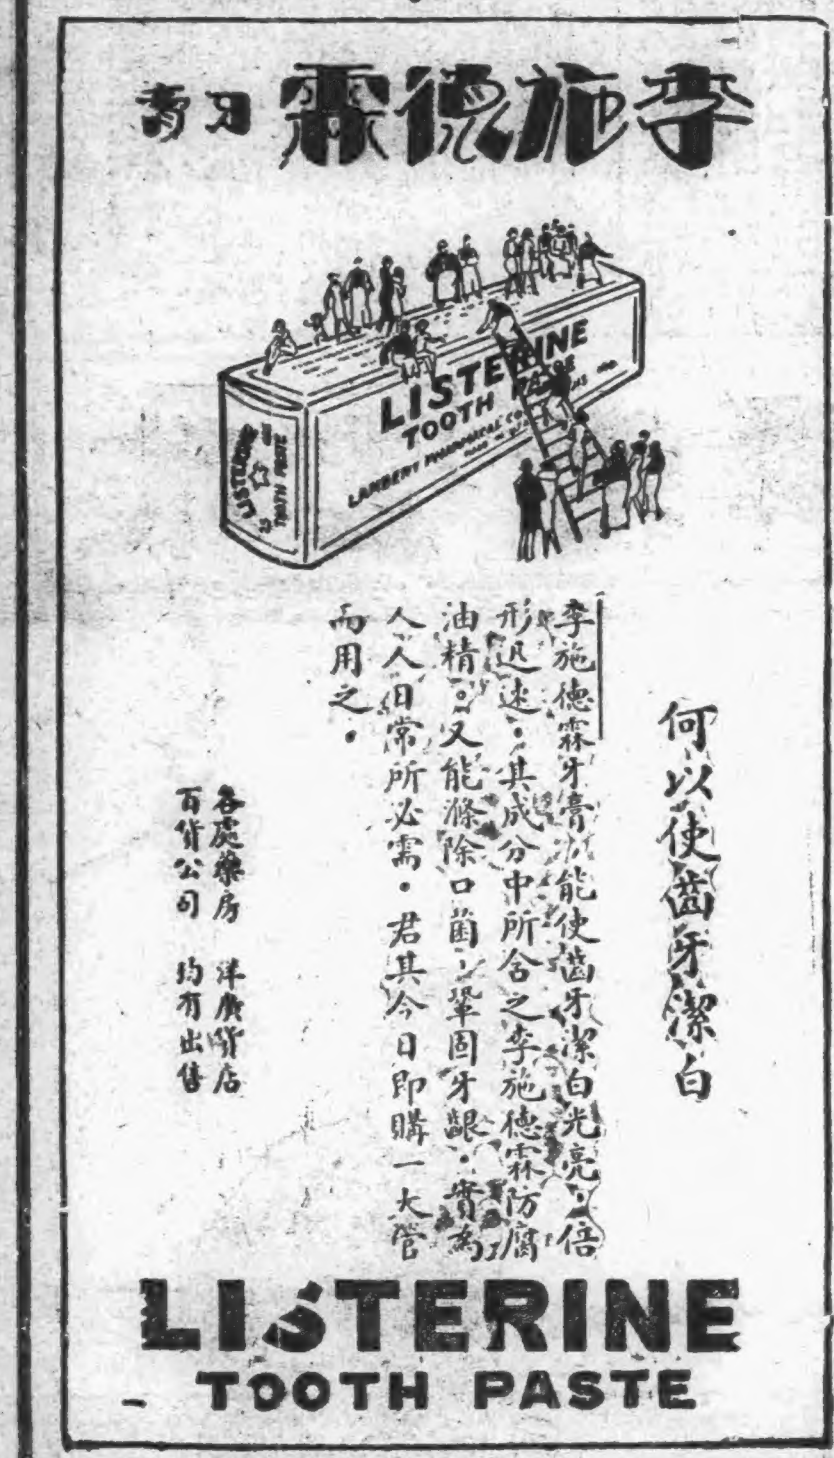 李施德霖牙膏
LISTERINE
TOOTH PASTE
LAMBERT PHARMACAL CO
LISTERINE
TOOTH PASTE
25
何以使齒牙潔白
李施德霖牙膏、能使齒牙潔白光亮、倍
形迅速。其成分中所含之李施德霖防腐
油精。又能滌除口菌、鞏固牙齦。實為
人人日常所必需。君其今日即購一大管
而用之。
各處藥房 洋廣貨店
百貨公司 均有出售
LISTERINE
TOOTH PASTE